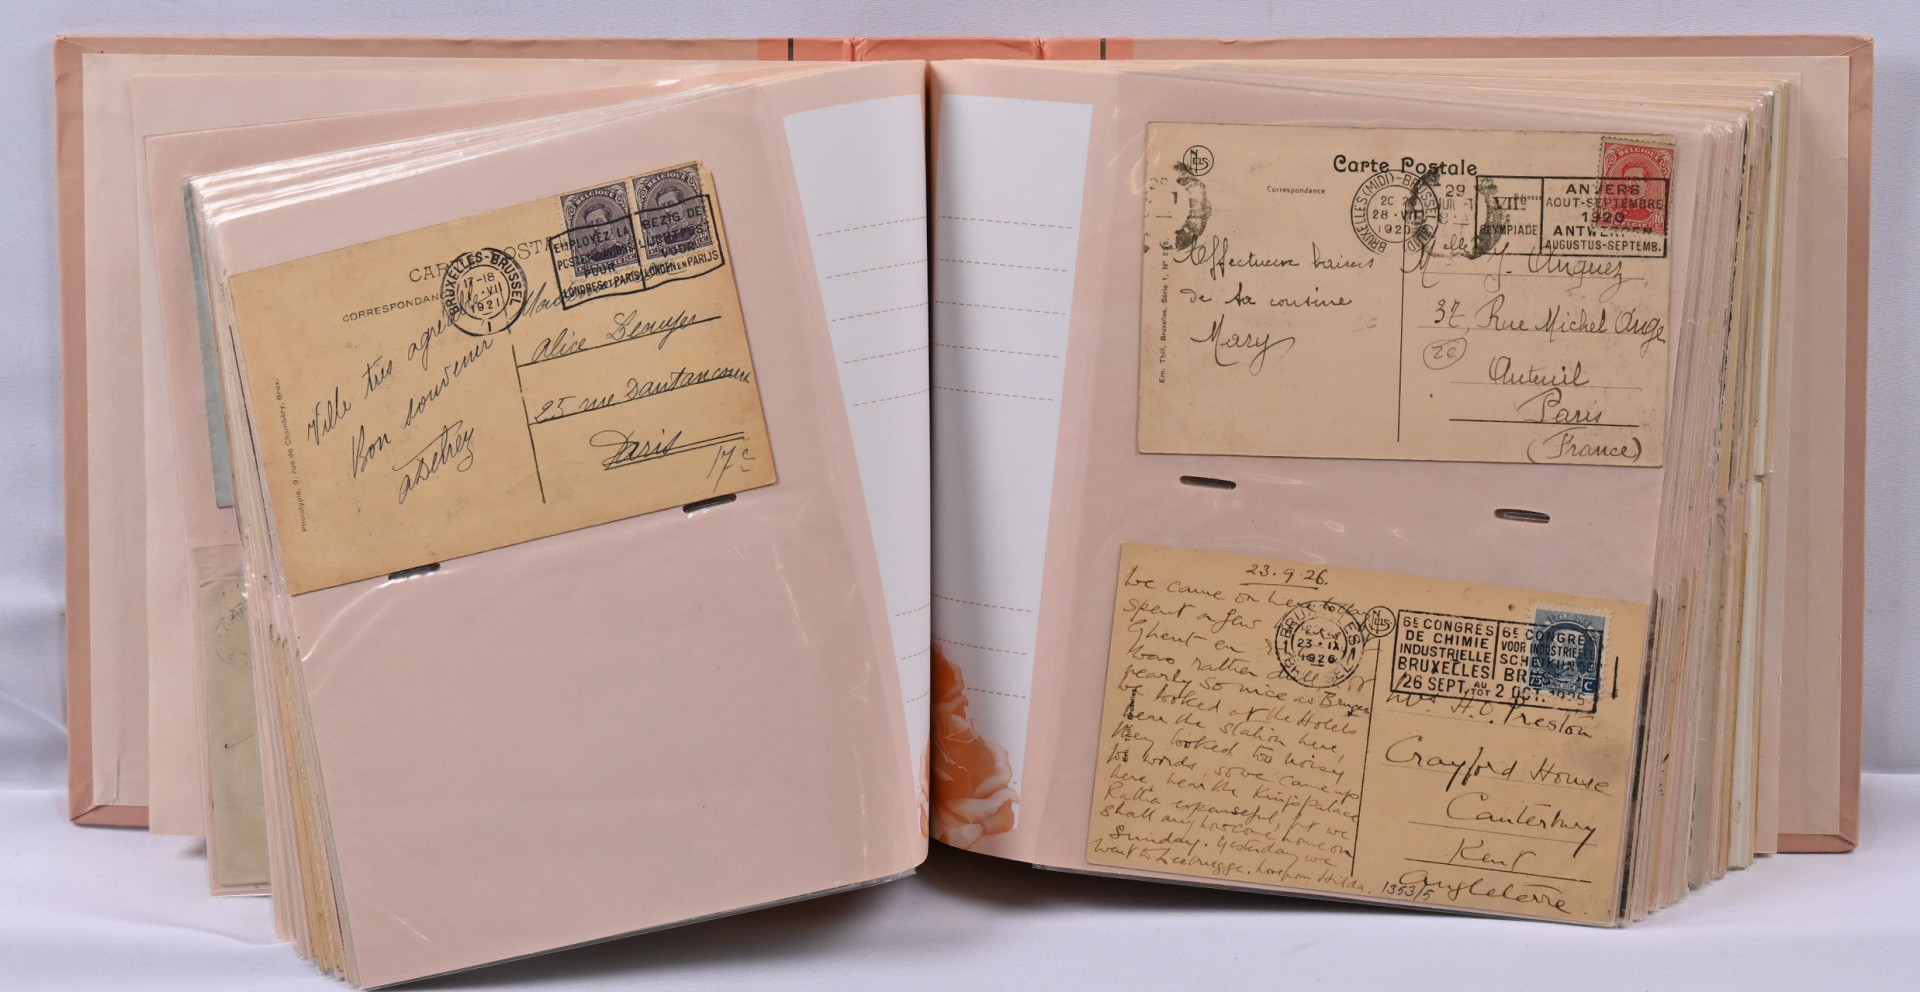 CARTE POSTALE
CORRESPONDANCE
BELGIQUE
BELGIQUE
EMPLOYEZ LA
POSTE PAR AVION
POUR
LONDRES ET PARIS
BEZIG DE
LUCHTPOST
VOOR
LONDEN EN PARIJS
BRUXELLES-BRUSSEL
17-18
VII
1921
1
Ville très agréable
Bon souvenir
ADetrez
Mademoiselle
Alice
25 rue Dautancourt
Paris
17e
Phototypie, 9, rue de Chambéry, Brux.
NELS
Carte Postale
Correspondance
Adresse
BRUXELLES (MIDI)-BRUSSEL (ZUID)
28 - VII
1920
29
VIIe
OLYMPIADE
ANVERS
AOUT-SEPTEMBRE
1920
ANTWERPEN
AUGUSTUS-SEPTEMB.
10
Affectueux baisers
de ta cousine
Mary
Melle Y. Anguez
37, Rue Michel Ange
Auteuil
Paris
(France)
Ern. Thill, Bruxelles, Série 1, No
23.9.26.
We came on here today
spent a few
Ghent en
was rather dull & not
nearly so nice as Bruges
We looked at the Hotels
near the station here,
they looked too noisy
for words, so we came up
here, near the King's palace
Rather expensive, but we
shall anyhow come home on
Sunday. Yesterday we
went to Zeebrugge. Love from Hilda.
NELS
BRUXELLES 1
23 - IX
1926
BRUSSEL 1
6E CONGRÈS
DE CHIMIE
INDUSTRIELLE
BRUXELLES
6E CONGRES
VOOR INDUSTRIEELE
SCHEIKUNDE
BRUSSEL
26 SEPT. AU TOT 2 OCT. 1926
Mrs H.C. Preston
Crayford House
Canterbury
Kent
Angleterre
1353/5
Ern. Thill, Bruxelles